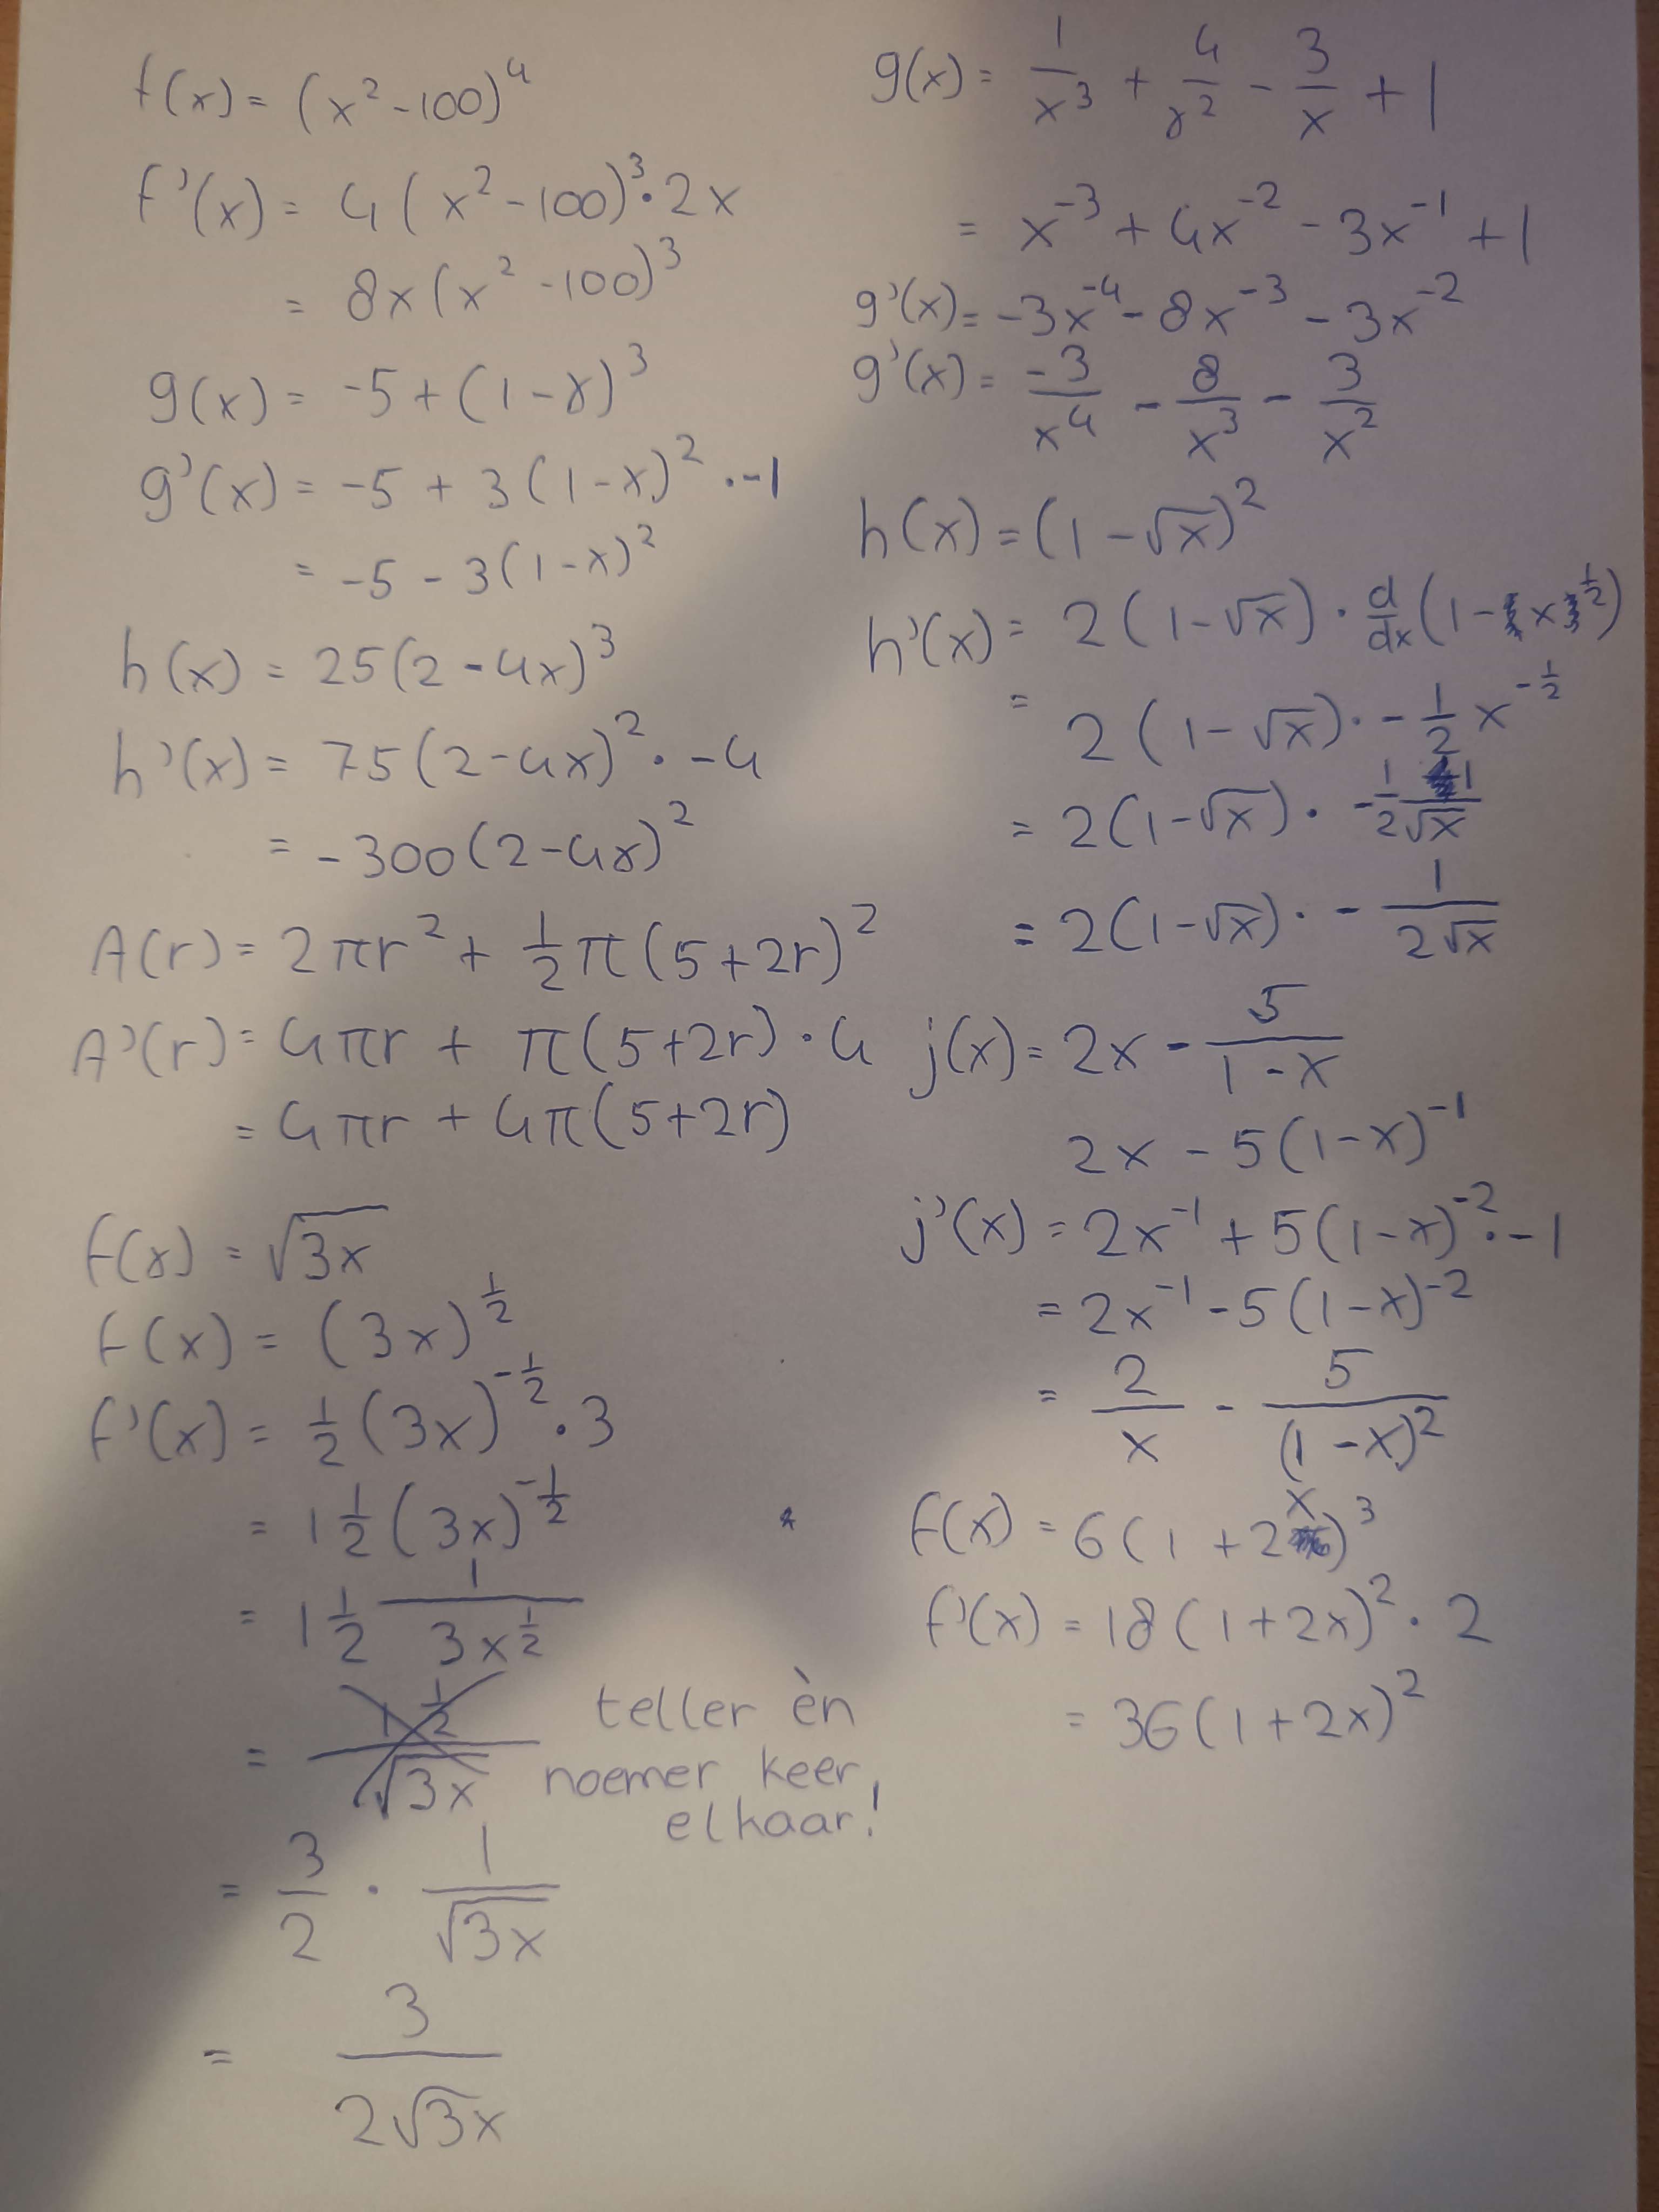 f(x) = (x² - 100)⁴
f'(x) = 4(x² - 100)³ · 2x
= 8x(x² - 100)³
g(x) = -5 + (1 - x)³
g'(x) = -5 + 3(1 - x)² · -1
= -5 - 3(1 - x)²
h(x) = 25(2 - 4x)³
h'(x) = 75(2 - 4x)² · -4
= -300(2 - 4x)²
A(r) = 2πr² + 1/2 π(5 + 2r)²
A'(r) = 4πr + π(5 + 2r) · 4
= 4πr + 4π(5 + 2r)
f(x) = √(3x)
f(x) = (3x)^(1/2)
f'(x) = 1/2 (3x)^(-1/2) · 3
= 1 1/2 (3x)^(-1/2)
= 1 1/2 1/(3x^(1/2))
= (1 1/2)/√(3x) teller èn
noemer keer
elkaar!
= 3/2 · 1/√(3x)
= 3/(2√(3x))
g(x) = 1/x³ + 4/x² - 3/x + 1
= x⁻³ + 4x⁻² - 3x⁻¹ + 1
g'(x) = -3x⁻⁴ - 8x⁻³ - 3x⁻²
g'(x) = -3/x⁴ - 8/x³ - 3/x²
h(x) = (1 - √x)²
h'(x) = 2(1 - √x) · d/dx (1 - x^(1/2))
= 2(1 - √x) · - 1/2 x^(-1/2)
= 2(1 - √x) · - 1/2 1/√x
= 2(1 - √x) · - 1/(2√x)
j(x) = 2x - 5/(1 - x)
2x - 5(1 - x)⁻¹
j'(x) = 2x⁻¹ + 5(1 - x)⁻² · -1
= 2x⁻¹ - 5(1 - x)⁻²
= 2/x - 5/(1 - x)²
f(x) = 6(1 + 2x)³
f'(x) = 18(1 + 2x)² · 2
= 36(1 + 2x)²